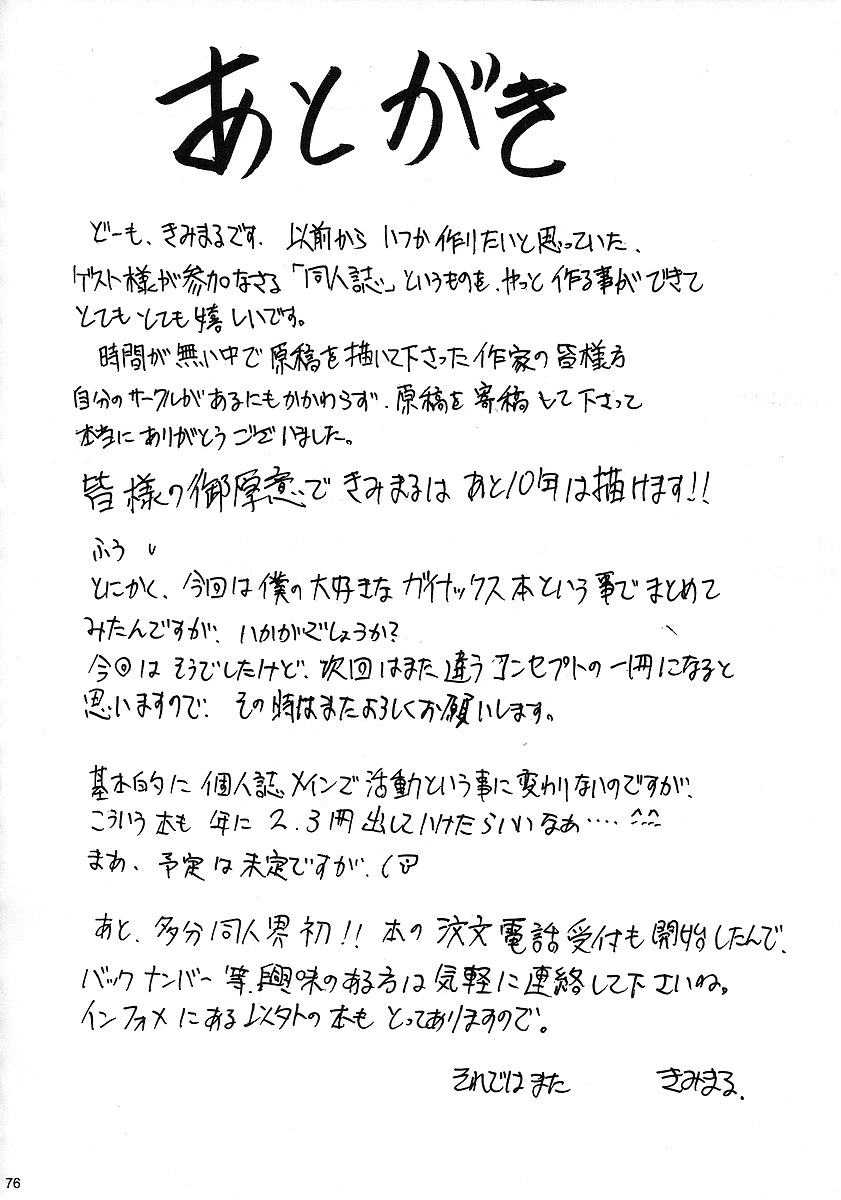 あとがき
どーも、きみまるです。以前からいつか作りたいと思っていた、
ゲスト様が参加なさる「同人誌」というものを、やっと作る事ができて
とてもとても嬉しいです。
時間が無い中で原稿を描いて下さった作家の皆様方
自分のサークルがあるにもかかわらず、原稿を寄稿して下さって
本当にありがとうございました。
皆様の御厚意できみまるはあと10年は描けます!!
ふう
とにかく、今回は僕の大好きなガイナックス本という事でまとめて
みたんですが、いかがでしょうか?
今回はそうでしたけど、次回はまた違うコンセプトの一冊になると
思いますので、その時はまたよろしくお願いします。
基本的に個人誌メインで活動という事に変わりないのですが、
こういう本も年に2.3冊出していけたらいいなあ‥‥
まあ、予定は未定ですが、(
あと、多分同人界初!!本の注文電話受付も開始したんで、
バックナンバー等、興味のある方は気軽に連絡して下さいね。
インフォメにある以外の本もとってありますので。
それではまた きみまる.
76